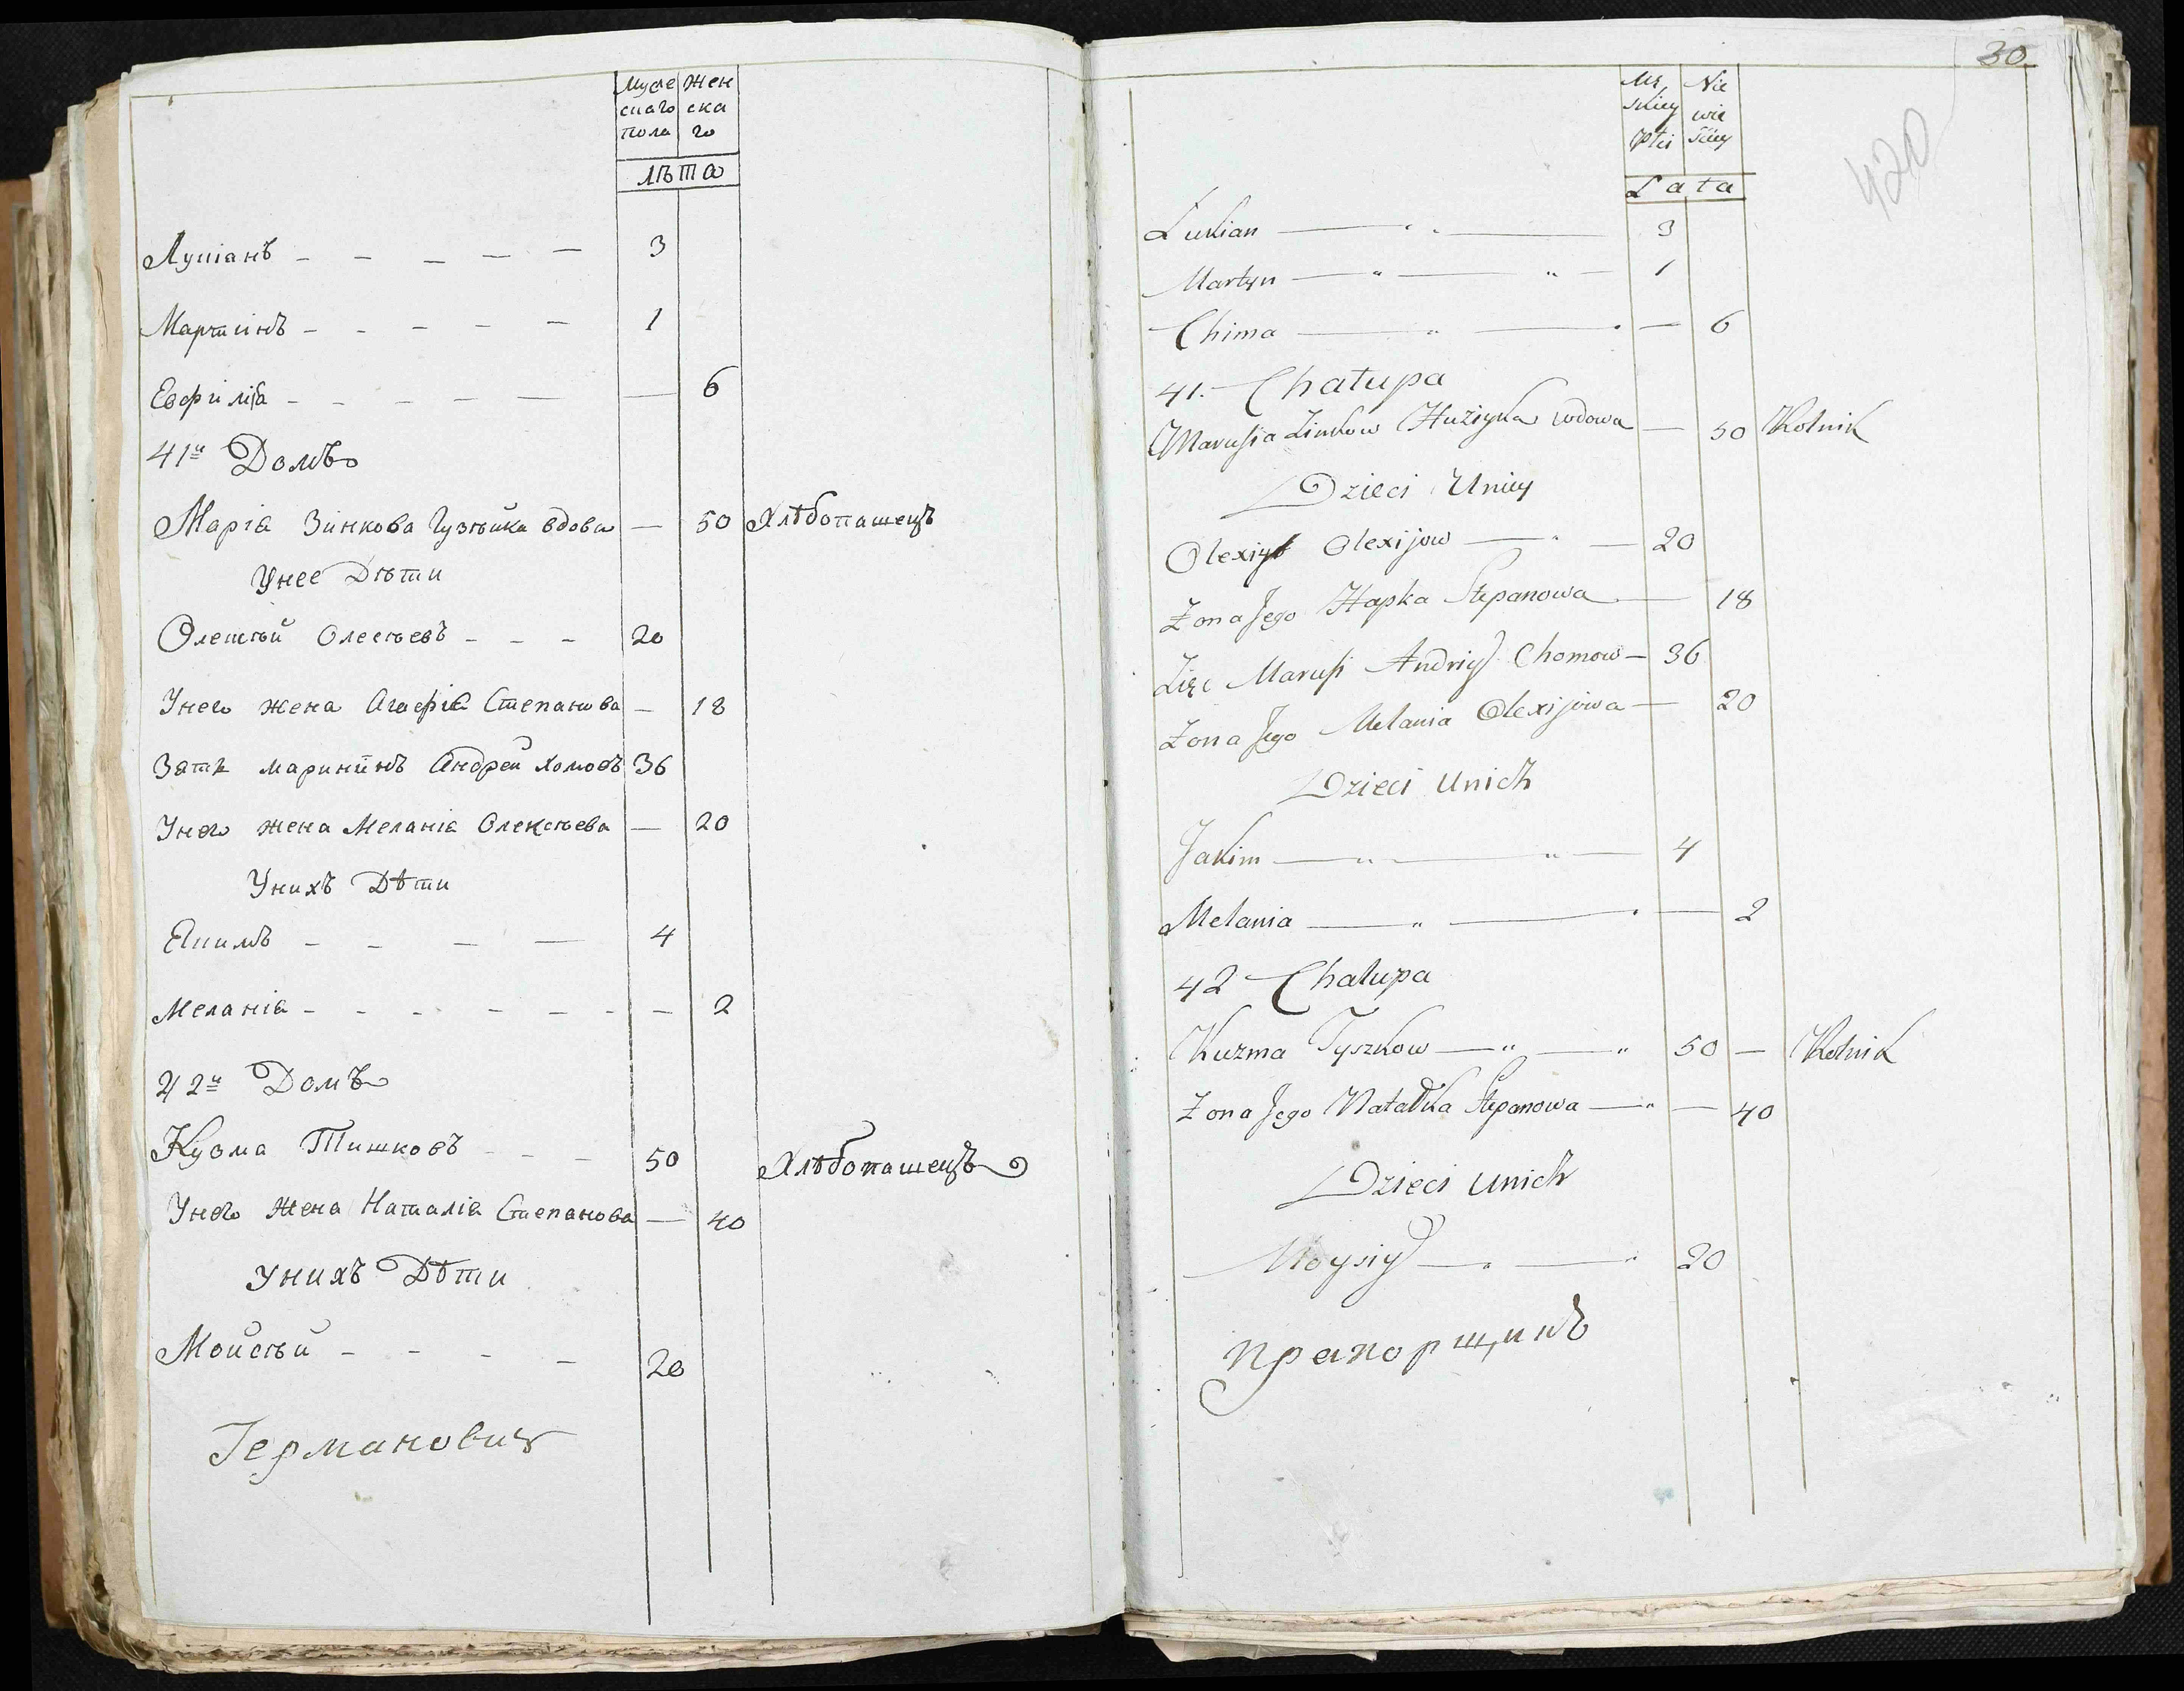 Муже Жен
скаго ска
пола го
лѣта
Лукіанъ - - - - - 3
Мартинъ - - - - - 1
Евфиміа - - - - - — 6
41й Домъ
Маріа Зинкова Гузѣйка вдова — 50 Хлѣбопашецъ
Унее Дѣти
Олексѣй Олесѣевъ - - - 20
Унего жена Агафіа Степанова — 18
Зять марининъ Андрей Хомовъ 36
Унего жена Меланіа Олексѣева — 20
Унихъ Дѣти
Якимъ - - - - 4
Меланіа - - - - - - - 2
42й Домъ
Кузма Тишковъ - - - 50 Хлѣбопашецъ
Унего Жена Наталіа Степанова — 40
Унихъ Дѣти
Мойсѣй - - - - 20
Германовичъ
30
420
Mę Nie
skiey wie
Płci sciey
Lata
Lukian — 3
Martyn — " — " — 1
Chima — " — — 6
41. Chałupa
Marusia Zinkow Huziyka wdowa — 50 Rolnik
Dzieci Uniey
Olexiy Olexijow — " — 20
Żona Jego Hapka Stepanowa — 18
Zięc Marusi Andriy Chomow — 36
Żona Jego Melania Olexijowa — 20
Dzieci Unich
Jakim — " — " — 4
Melania — " — — 2
42 Chałupa
Kuzma Tyszkow — " — " 50 — Rolnik
Żona Jego Natalka Stepanowa — " — 40
Dzieci Unich
Moysiy — " — " 20
Прапорщикъ